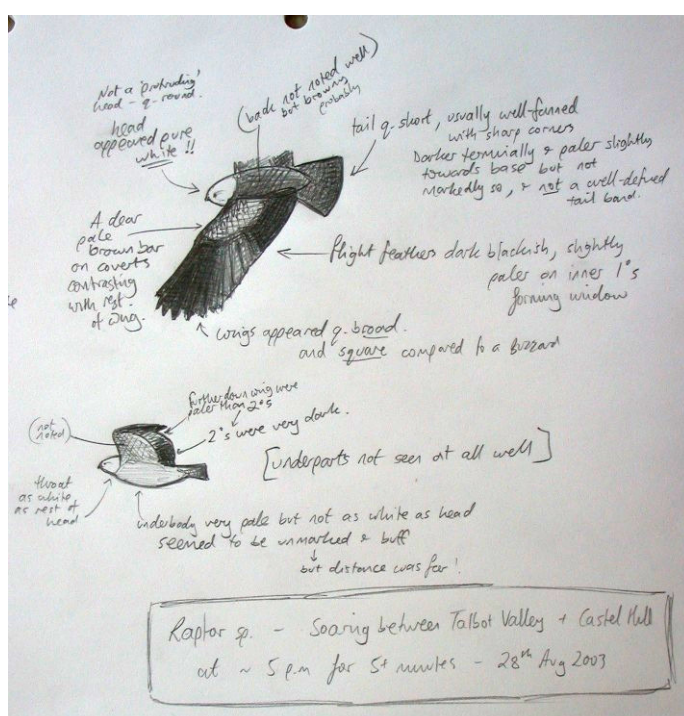 Not a 'protruding'
head - q. round.
head
appeared pure
white !!
(back not noted well)
but browny
probably
tail q. short, usually well-fanned
with sharp corners
Darker terminally & paler slightly
towards base but not
markedly so, & not a well-defined
tail band.
A clear
pale
brown bar
on coverts
contrasting
with rest
of wing.
flight feathers dark blackish, slightly
paler on inner 1°s
forming window
wings appeared q. broad
and square compared to a Buzzard
further down wing were
paler than 2°s
2°s were very dark.
(not
noted)
[underparts not seen at all well]
throat
as white
as rest of
head
underbody very pale but not as white as head
seemed to be unmarked & buff
but distance was far!
Raptor sp. - Soaring between Talbot Valley + Castel Hill
at ~ 5 p.m for 5+ minutes - 28th Aug 2003